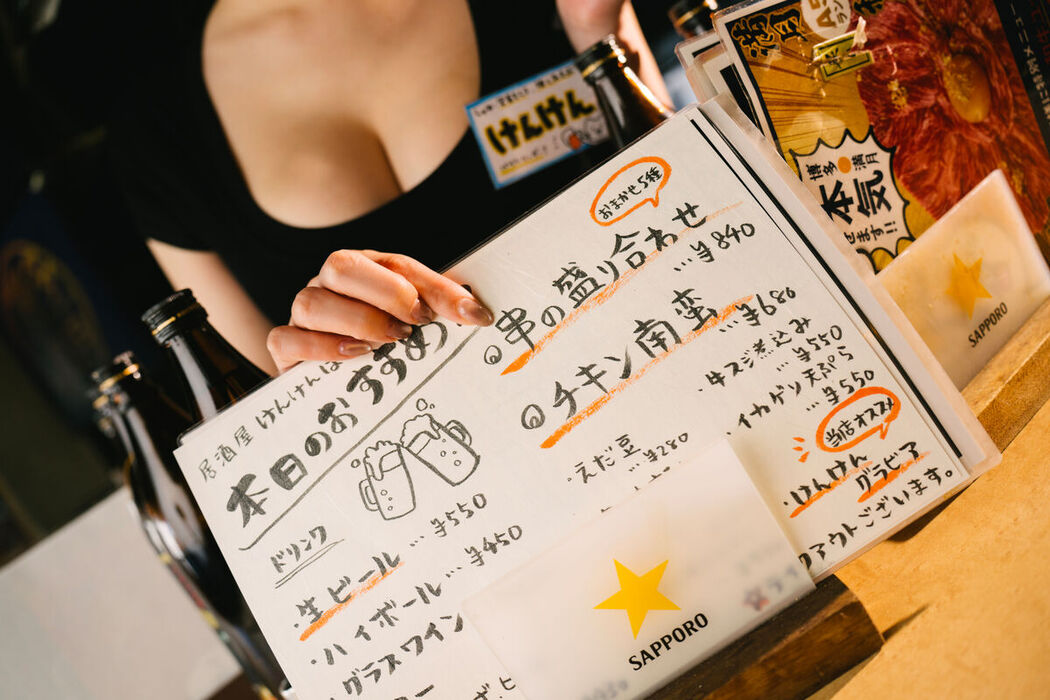 けんけん
居酒屋 けんけんは
本日のおすすめ
ドリンク
・生ビール…¥550
・ハイボール…¥450
・グラスワイン
おまかせ5種
串の盛り合わせ
…¥840
チキン南蛮
…¥680
・えだ豆
…¥280
・牛スジ煮込み
…¥550
・イカゲソ天ぷら
…¥550
当店オススメ
・けんけん
グラビア
クアウトございます。
SAPPORO
博多 満月
本気
せます!!
SAPPORO